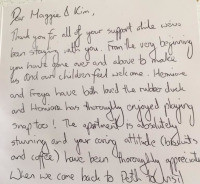 Dear Maggie & Kim,
Thank you for all of your support while we've
been staying with you. From the very beginning
you have gone over and above to make
us and our children feel welcome. Hermione
and Freya have both loved the rubber duck
and Hermione has thoroughly enjoyed playing
snap too! The apartment is absolutely
stunning and your caring attitude (chocolates
and coffee) have been thoroughly appreciated
When we come back to Perth to visit